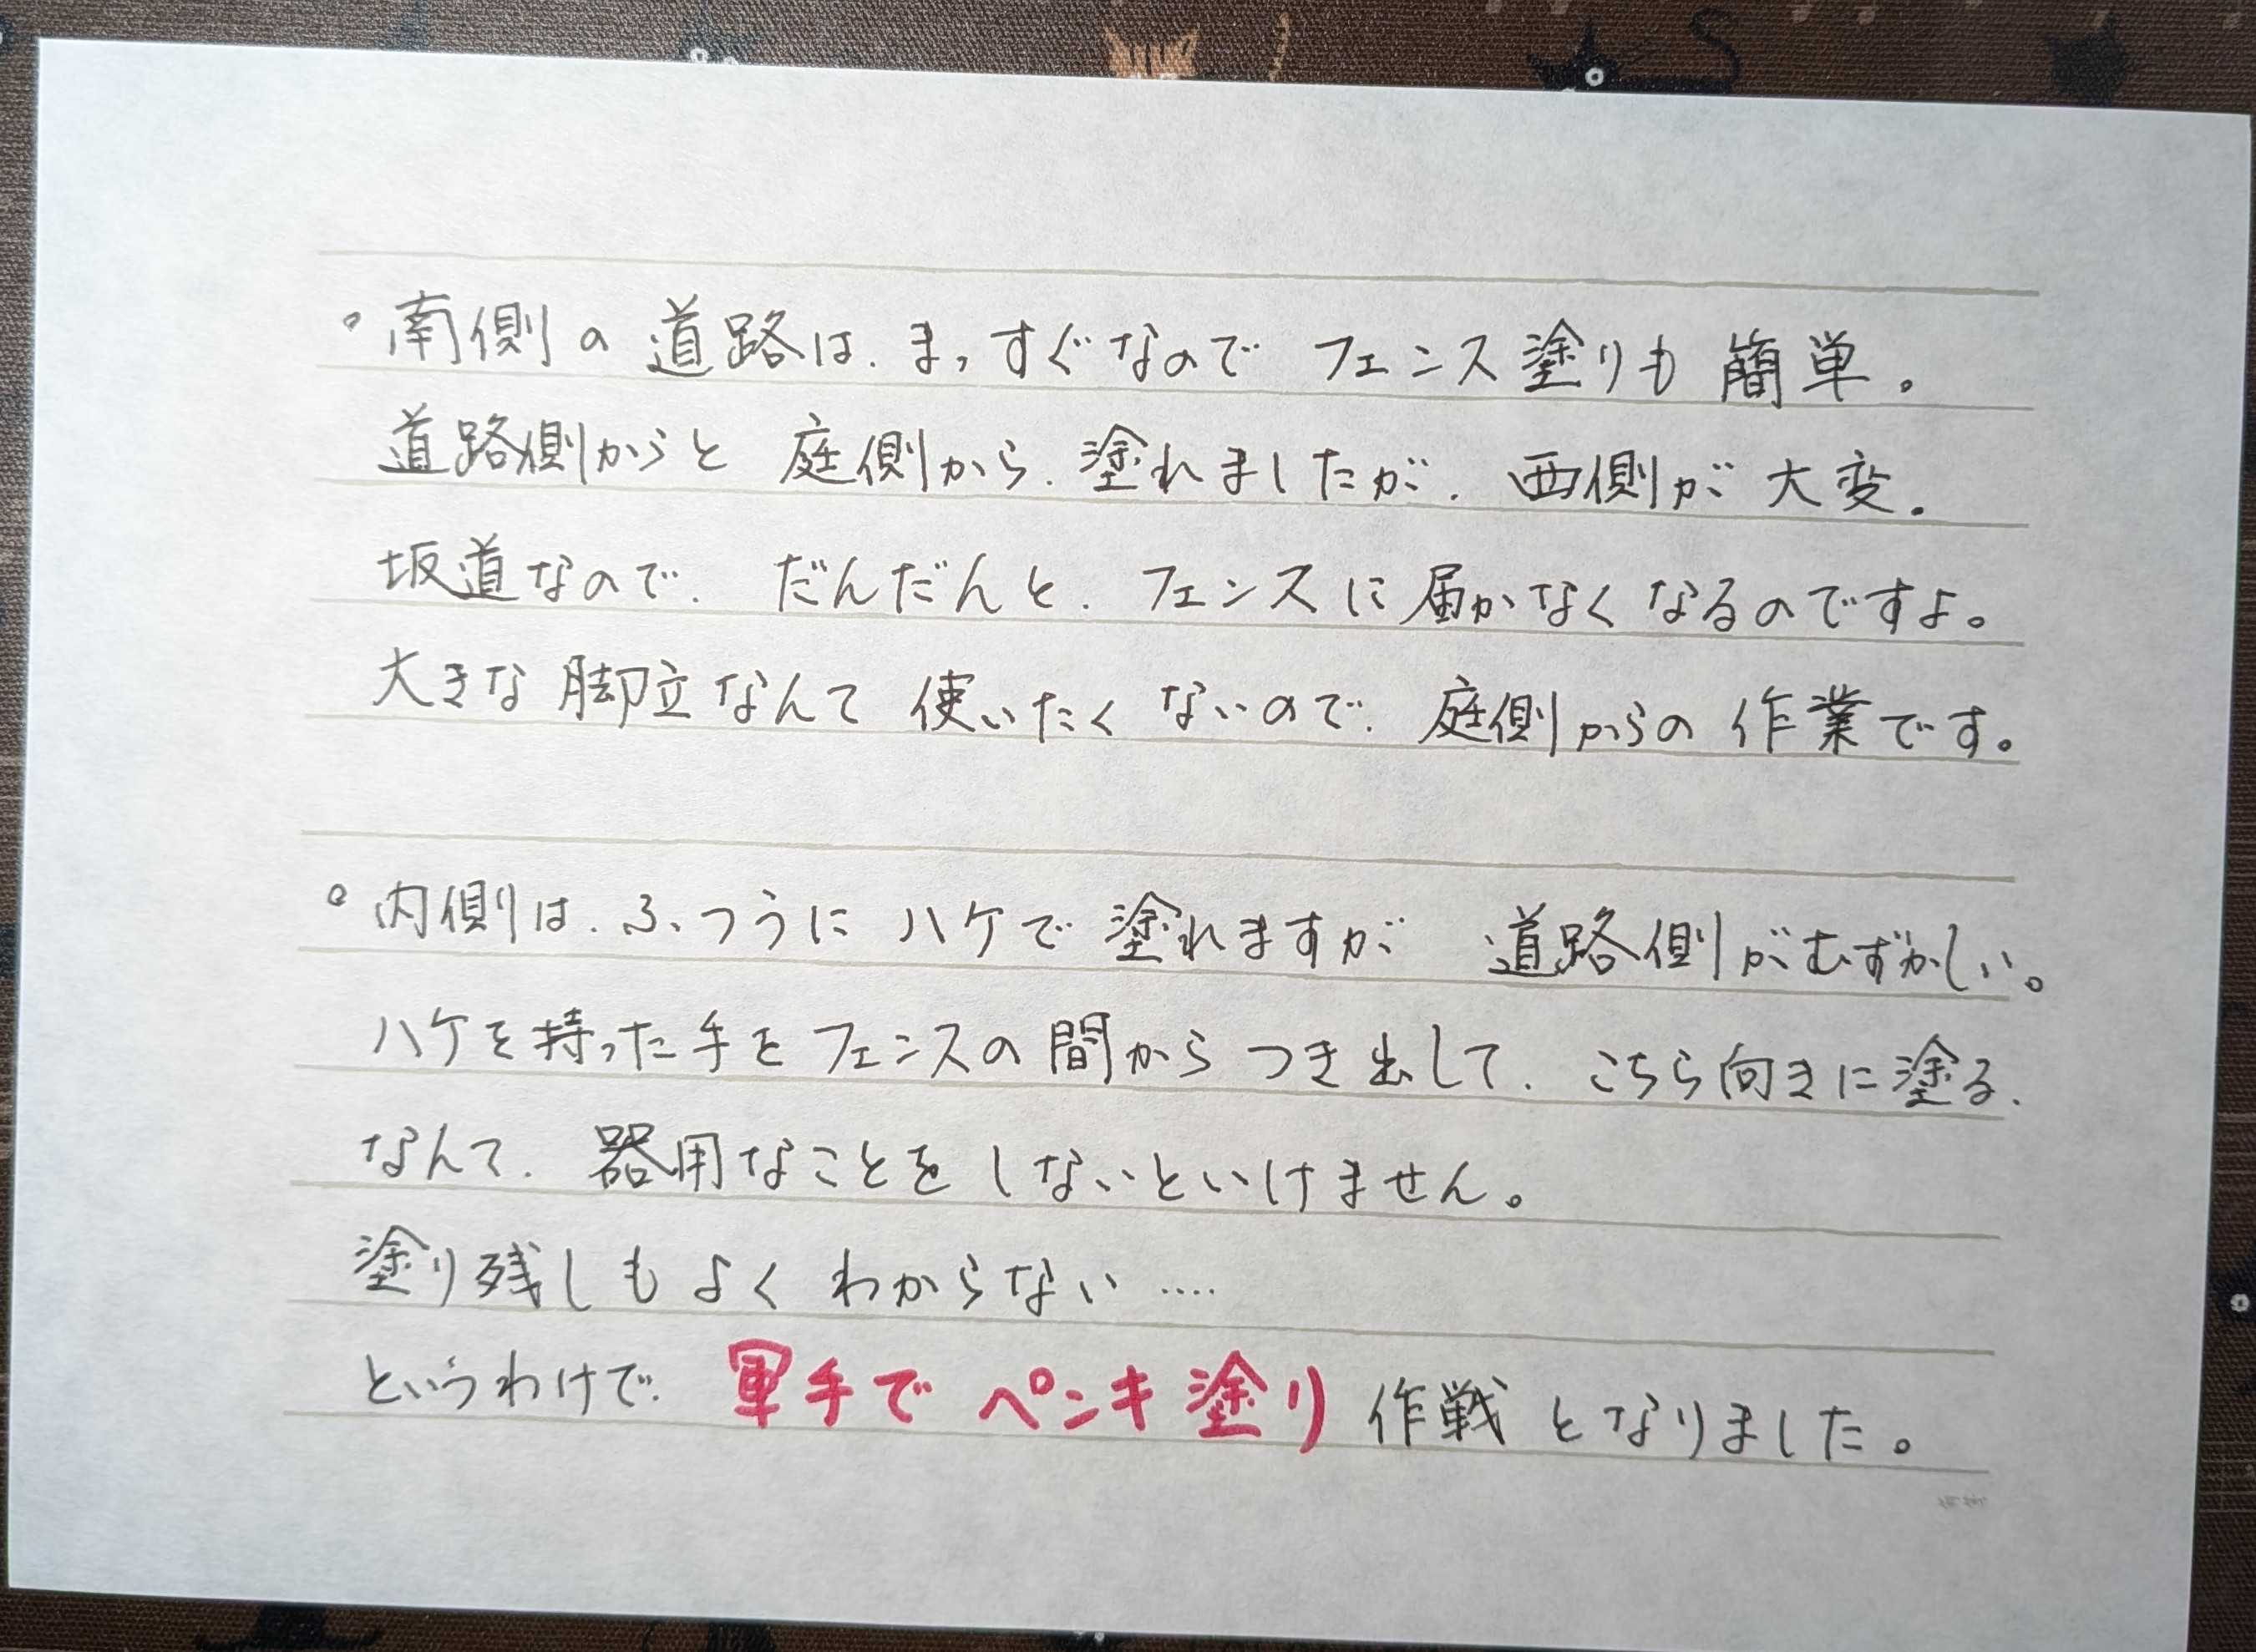 。南側の道路は、まっすぐなので フェンス塗りも簡単。
道路側からと 庭側から、塗れましたが、西側が 大変。
坂道なので、だんだんと、フェンスに届かなくなるのですよ。
大きな脚立なんて 使いたくないので、庭側からの 作業です。
。内側は、ふつうに ハケで塗れますが 道路側がむずかしい。
ハケを持った手を フェンスの間から つき出して、こちら向きに塗る、
なんて、器用なことを しないといけません。
塗り残しも よく わからない ....
というわけで、軍手で ペンキ塗り 作戦 となりました。